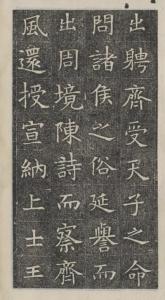 出聘齊受天子之命
問諸侯之俗延譽而
出周境陳詩而察齊
風還授宣納上士王